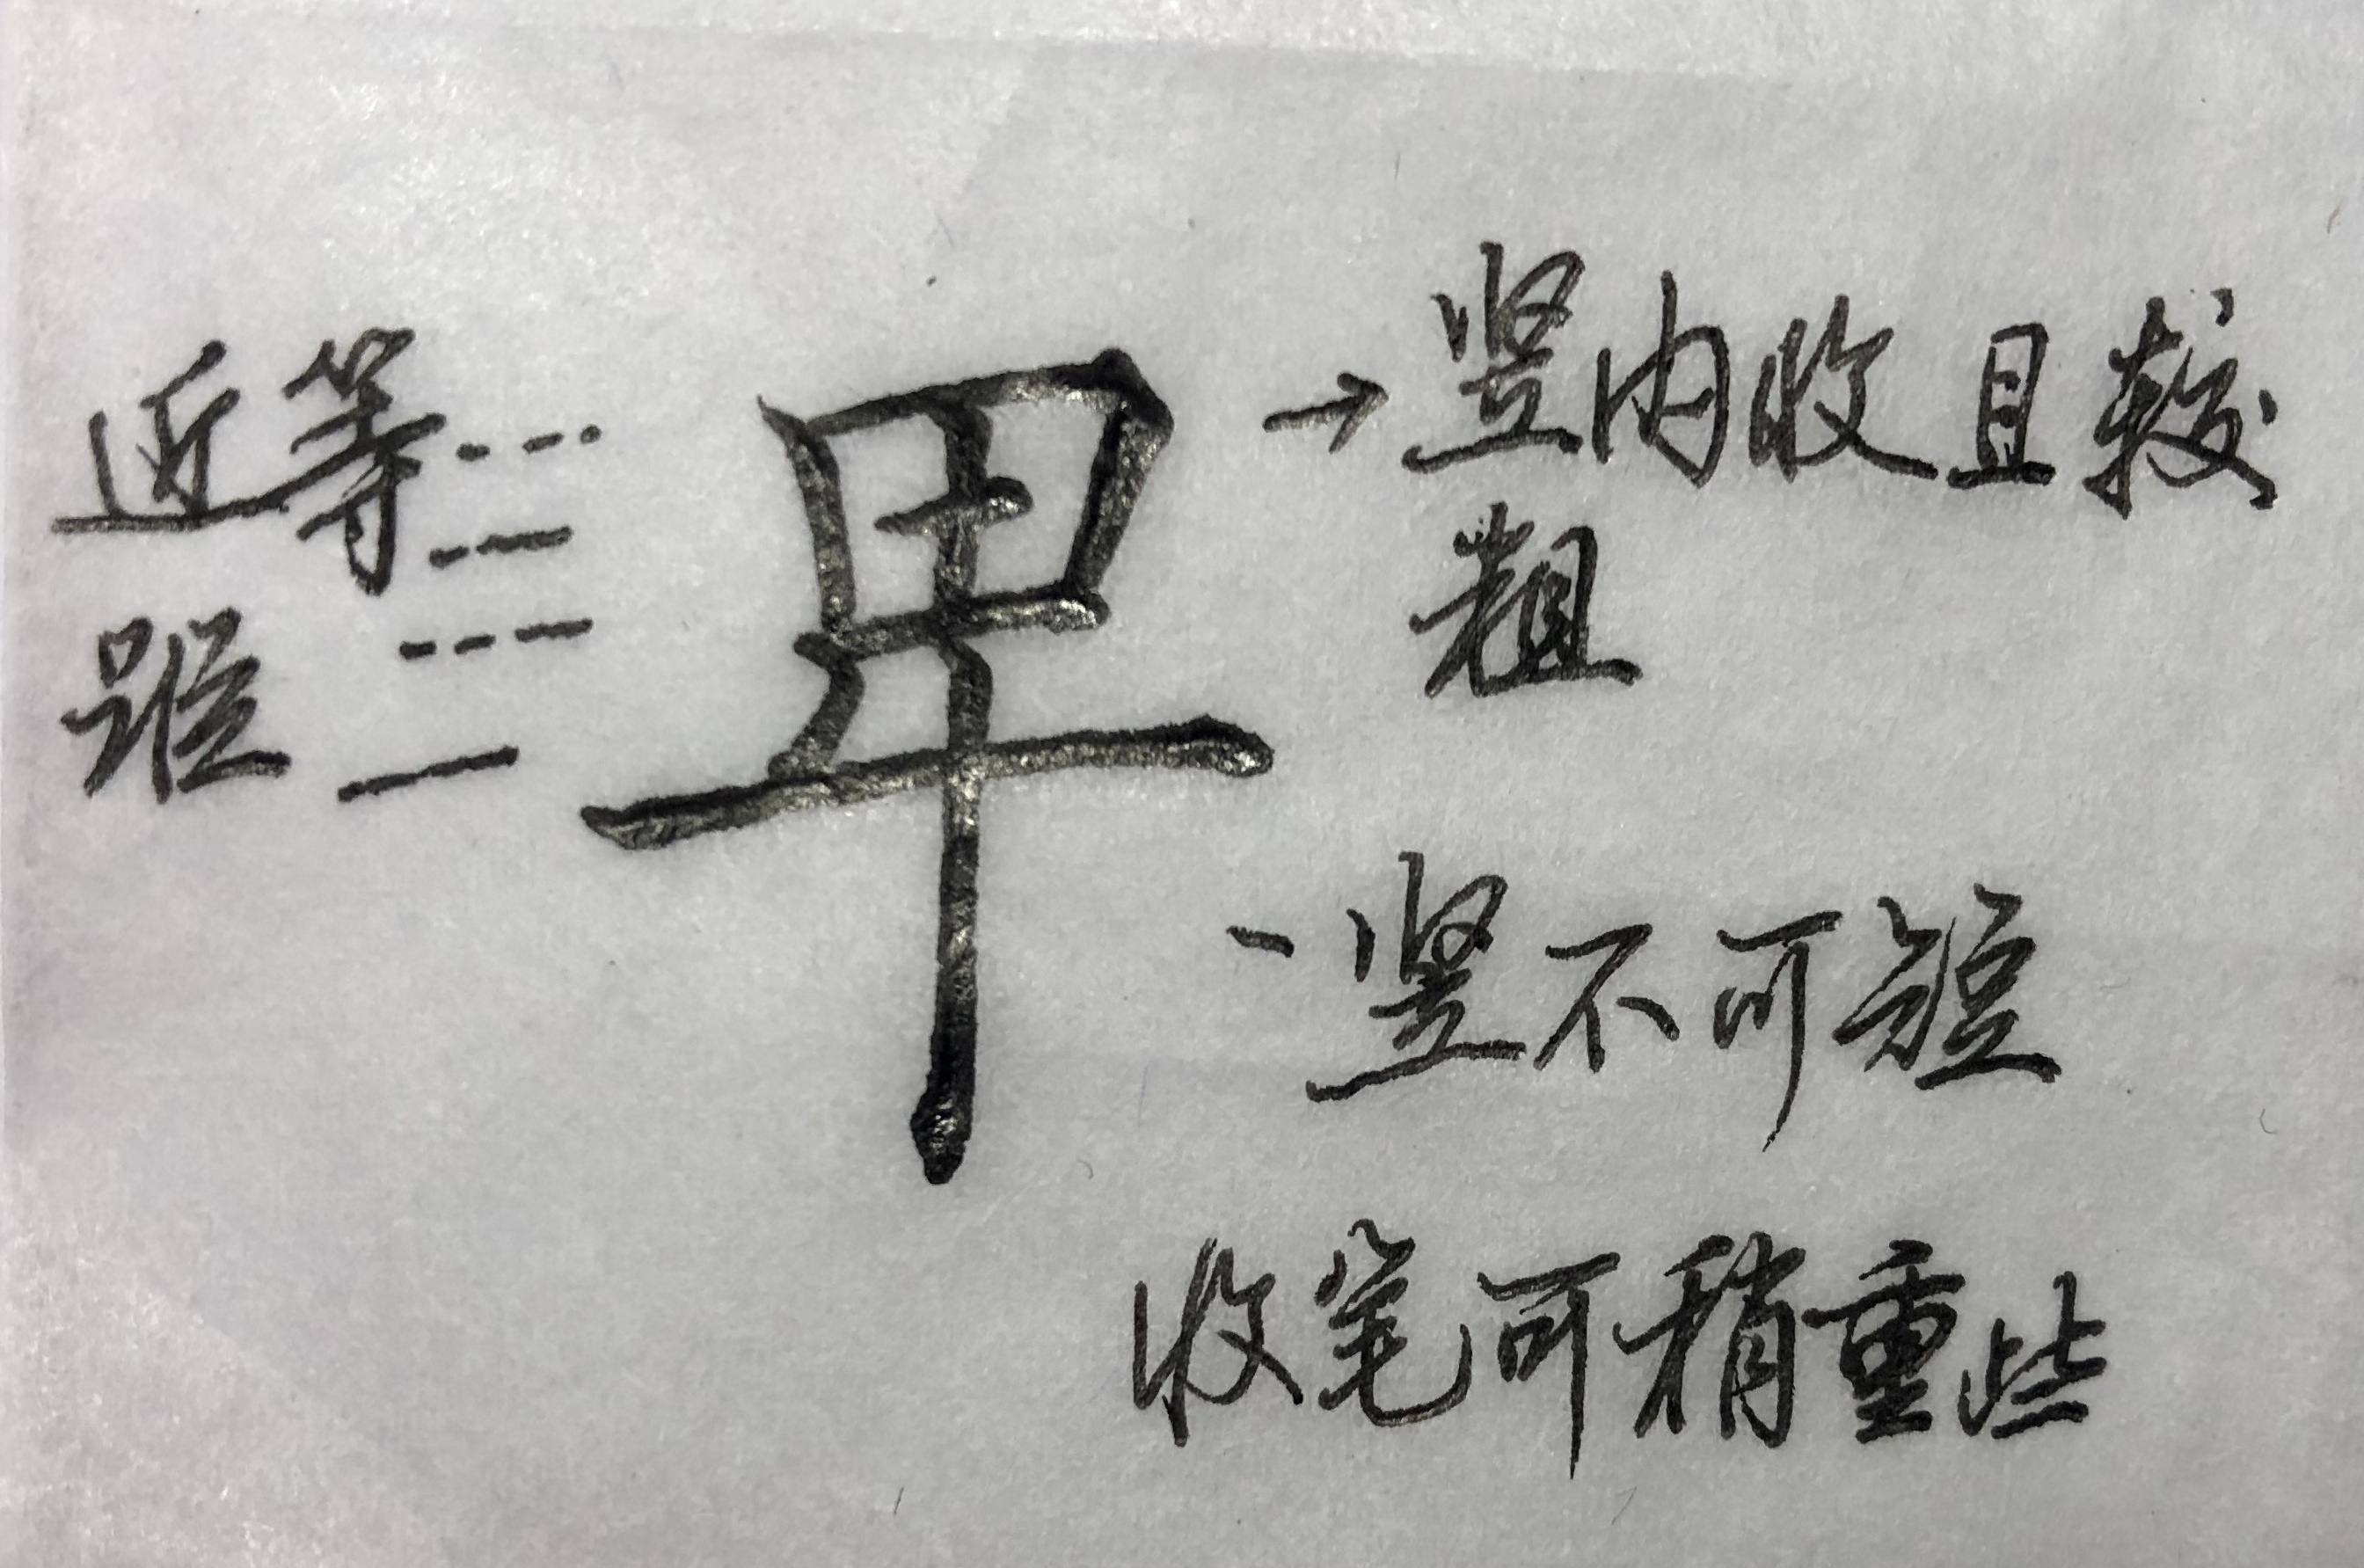 近等
距
卑
→竖内收且较
粗
竖不可短
收笔可稍重些